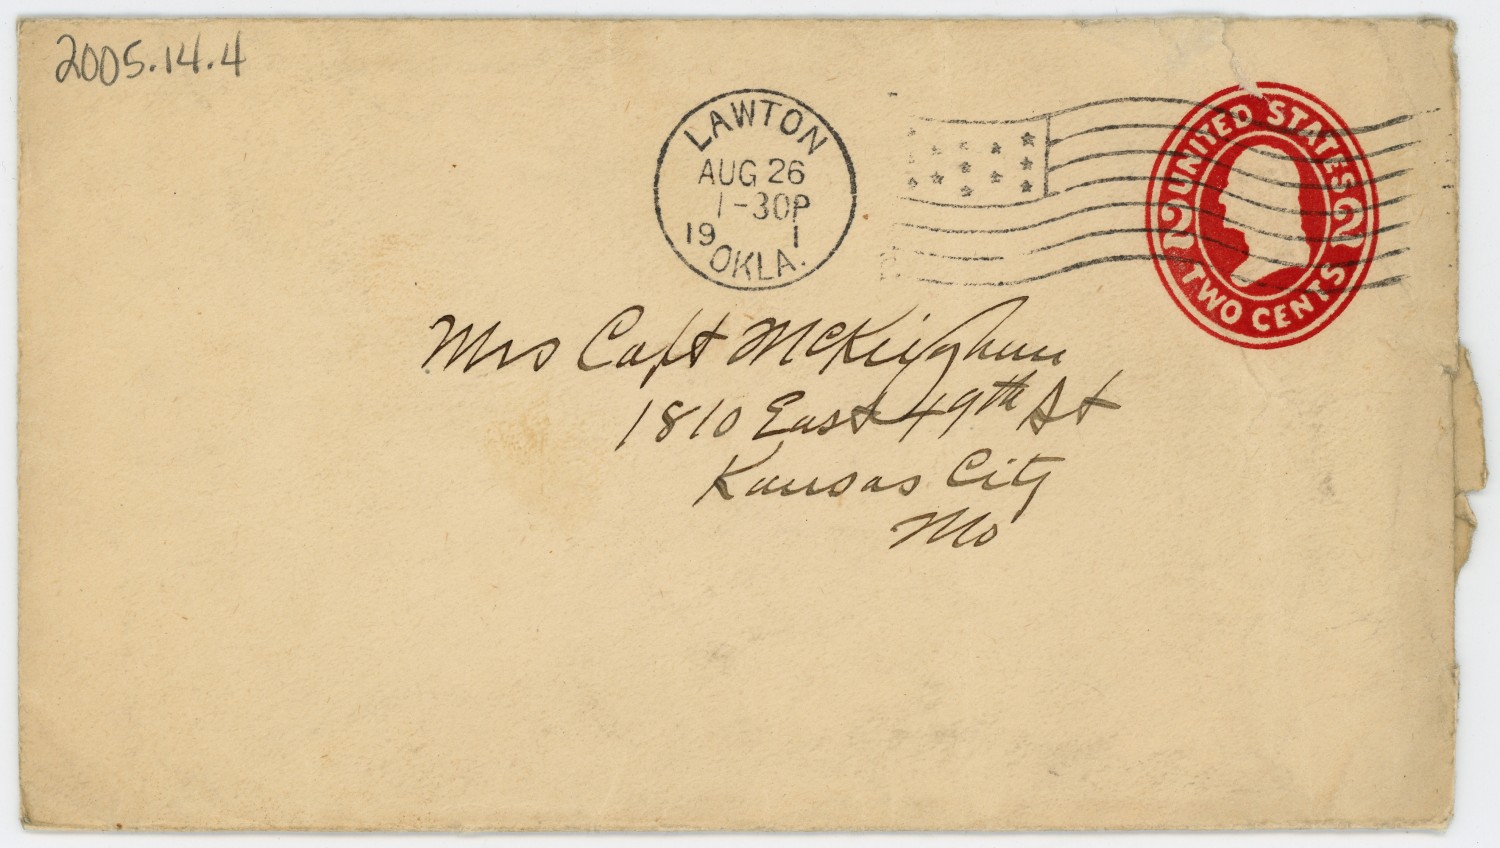 2005.14.4
LAWTON
AUG 26
1-30P
19 1
OKLA.
UNITED STATES
2 2
TWO CENTS
Mrs Capt
1810 East 49th St
Kansas City
Mo